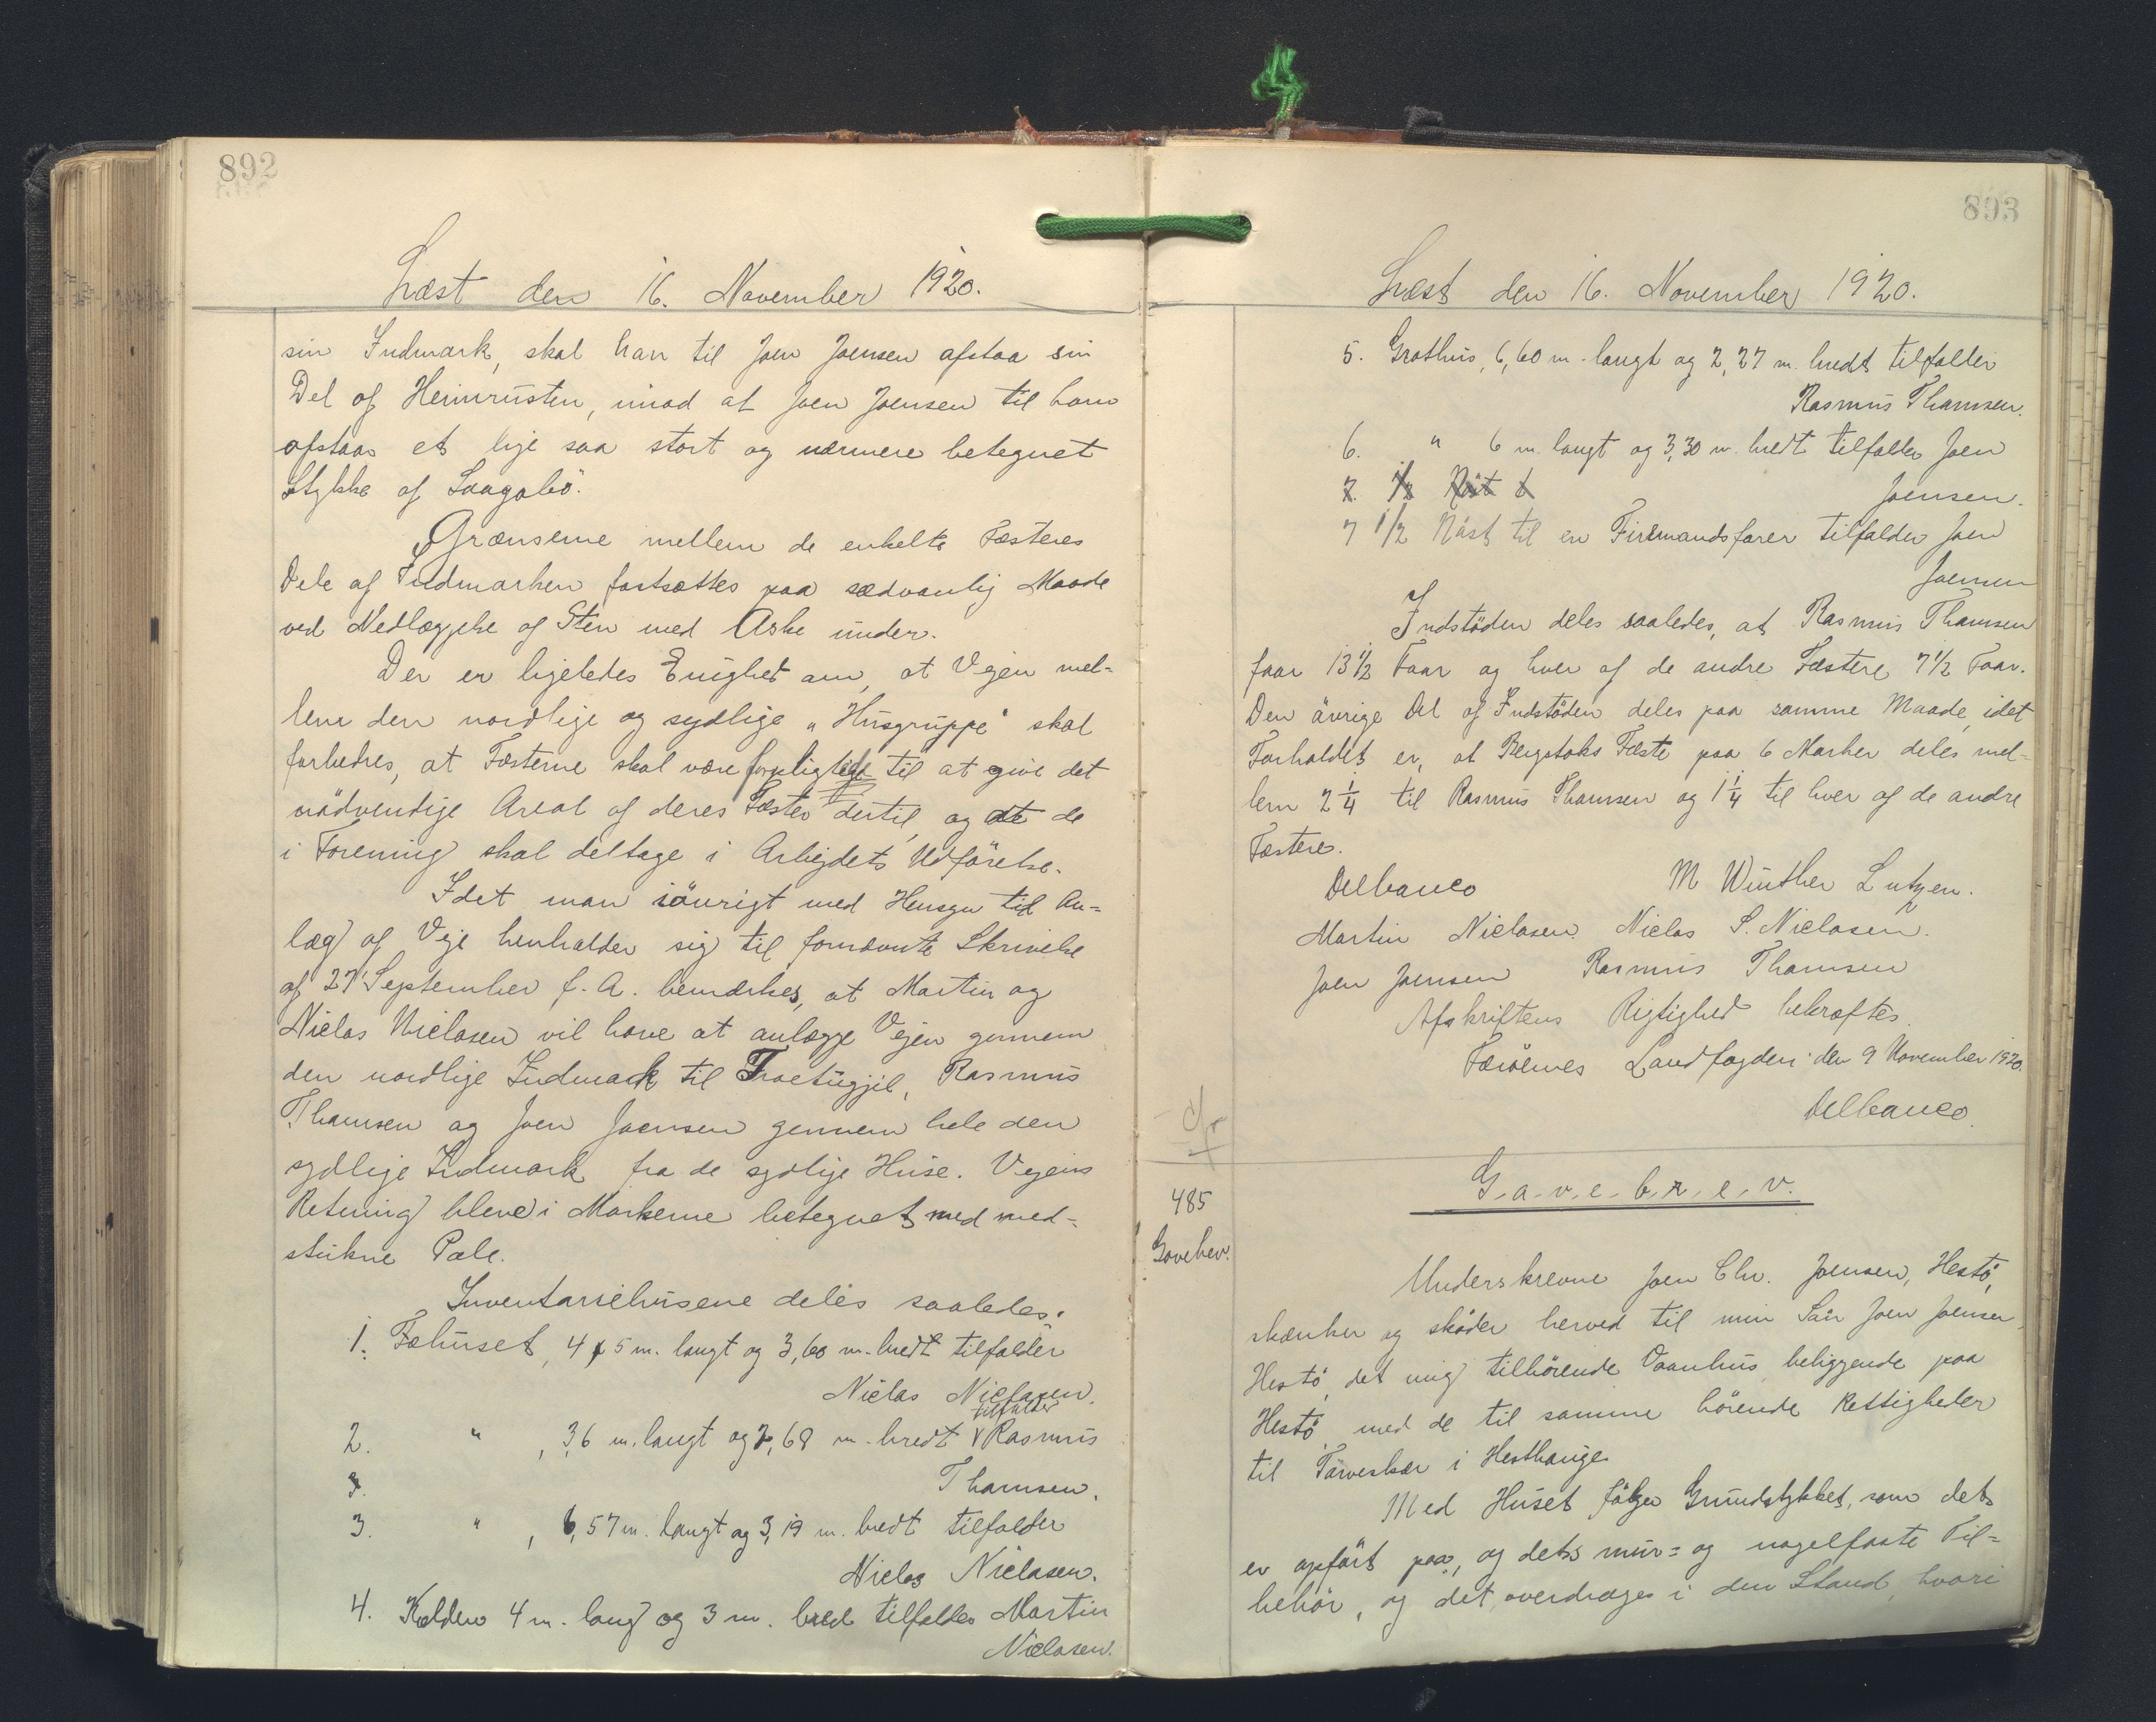 892
Læst den 16. November 1920.
sin Indmark, skal han til Joen Joensen afstaa sin
Del af Heimrusten, imod at Joen Joensen til ham
afstaar et lige saa stort og nærmere betegnet
Stykke af Laagabö.
Grænserne mellem de enkelte Fæsteres
Dele af Indmarken fastsættes paa sædvanlig Maade
ved Nedlæggelse af Sten med Aske under.
Der er ligeledes Enighed om, at Vejen mel-
lem den nordlige og sydlige "Husgruppe" skal
forbedres, at Fæsterne skal være forpligtede til at give det
nödvendige Areal af deres Fæster dertil, og at de
i Forening skal deltage i Arbejdets Udförelse.
Idet man iövrigt med Hensyn til An-
læg af Veje henholder sig til fornævnte Skrivelse
af 27 September f. A. bemærkes, at Martin og
Niclas Niclasen vil have at anlægge Vejen gennem
den nordlige Indmark til Troetugjil, Rasmus
Thomsen og Joen Joensen gennem hele den
sydlige Indmark fra de sydlige Huse. Vejens
Retning blev i Markerne betegnet med ned-
stukne Pæle.
Inventariehusene deles saaledes:
1. Fæhuset, 4,5 m. langt og 3,60 m. bredt tilfalder
Niclas Niclasen.
tilfalder
2. " , 3,6 m. langt og 2,68 m. bredt Rasmus
Thomsen.
3. " , 6,57 m. langt og 3,19 m. bredt tilfalder
Niclas Niclasen.
4. Kælder 4 m. lang og 3 m. bred tilfalder Martin
Niclasen.
893
Læst den 16. November 1920.
5. Grothus, 6,60 m. langt og 2,27 m. bredt tilfalder
Rasmus Thomsen.
6. " 6 m. langt og 3,30 m. bredt tilfalder Joen
7. 1/2 Nöst t
Joensen.
7 1/2 Nöst til en Firemandsfarer tilfalder Joen
Joensen
Indstöden deles saaledes, at Rasmus Thomsen
faar 13 1/2 Faar og hver af de andre Fæstere 7 1/2 Faar.
Den övrige Del af Indstöden deles paa samme Maade, idet
Forholdet er, at Bergstoks Fæste paa 6 Marker deles mel-
lem 2 1/4 til Rasmus Thomsen og 1 1/4 til hver af de andre
Fæstere.
Delbanco M Winther Lutzen.
Martin Niclasen. Niclas S. Niclasen.
Joen Joensen Rasmus Thomsen
Afskriftens Rigtighed bekræftes.
Færöernes Landfogderi den 9 November 1920.
Delbanco.
485
Gavebrev.
G.a.v.e.b.r.e.v.
Underskrevne Joen Chr. Joensen, Hestö,
skænker og sköder herved til min Sön Joen Joensen,
Hestö, det mig tilhörende Vaanhus beliggende paa
Hestö med de til samme hörende Rettigheder
til Törveskær i Hesthauge.
Med Huset fölger Grundstykket, som det
er opfört paa, og dets mur= og nagelfaste Til=
behör, og det overdrages i den Stand, hvori